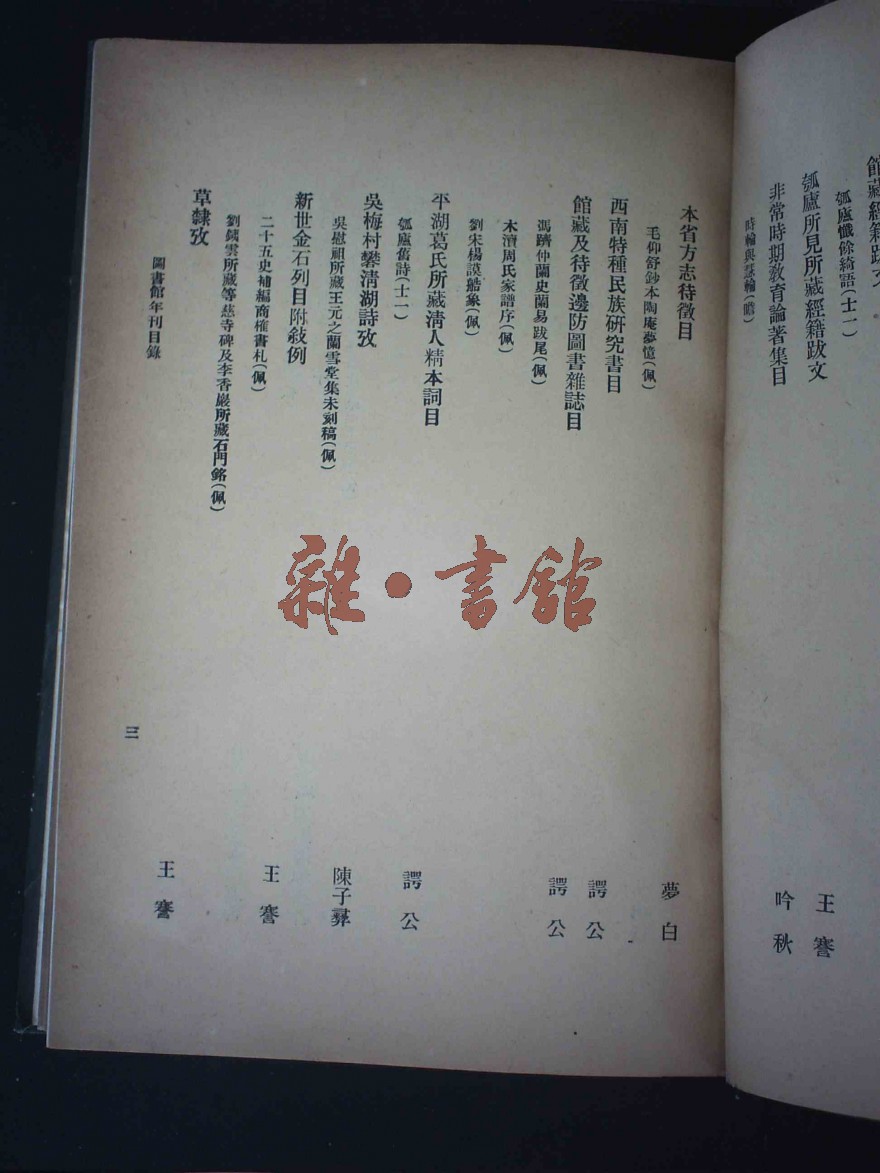 館藏經籍跋文
瓠廬懺餘綺語(士一)
瓠廬所見所藏經籍跋文
王謇
非常時期敎育論著集目
吟秋
時輪與慧輪(瞻)
本省方志待徵目
夢白
毛仰舒鈔本陶庵夢憶(佩)
西南特種民族硏究書目
諤公
館藏及待徵邊防圖書雜誌目
諤公
馮躋仲蘭史蘭易跋尾(佩)
木瀆周氏家譜序(佩)
劉宋楊謨造象(佩)
平湖葛氏所藏淸人精本詞目
諤公
瓠廬舊詩(士一)
吳梅村攀淸湖詩攷
陳子彝
吳慰祖所藏王元之蘭雪堂集未刻稿(佩)
新世金石列目附敍例
王謇
二十五史補編商榷書札(佩)
劉鐵雲所藏等慈寺碑及李香巖所藏石門銘(佩)
草隸攷
王謇
圖書館年刊目錄
三
雜·書館